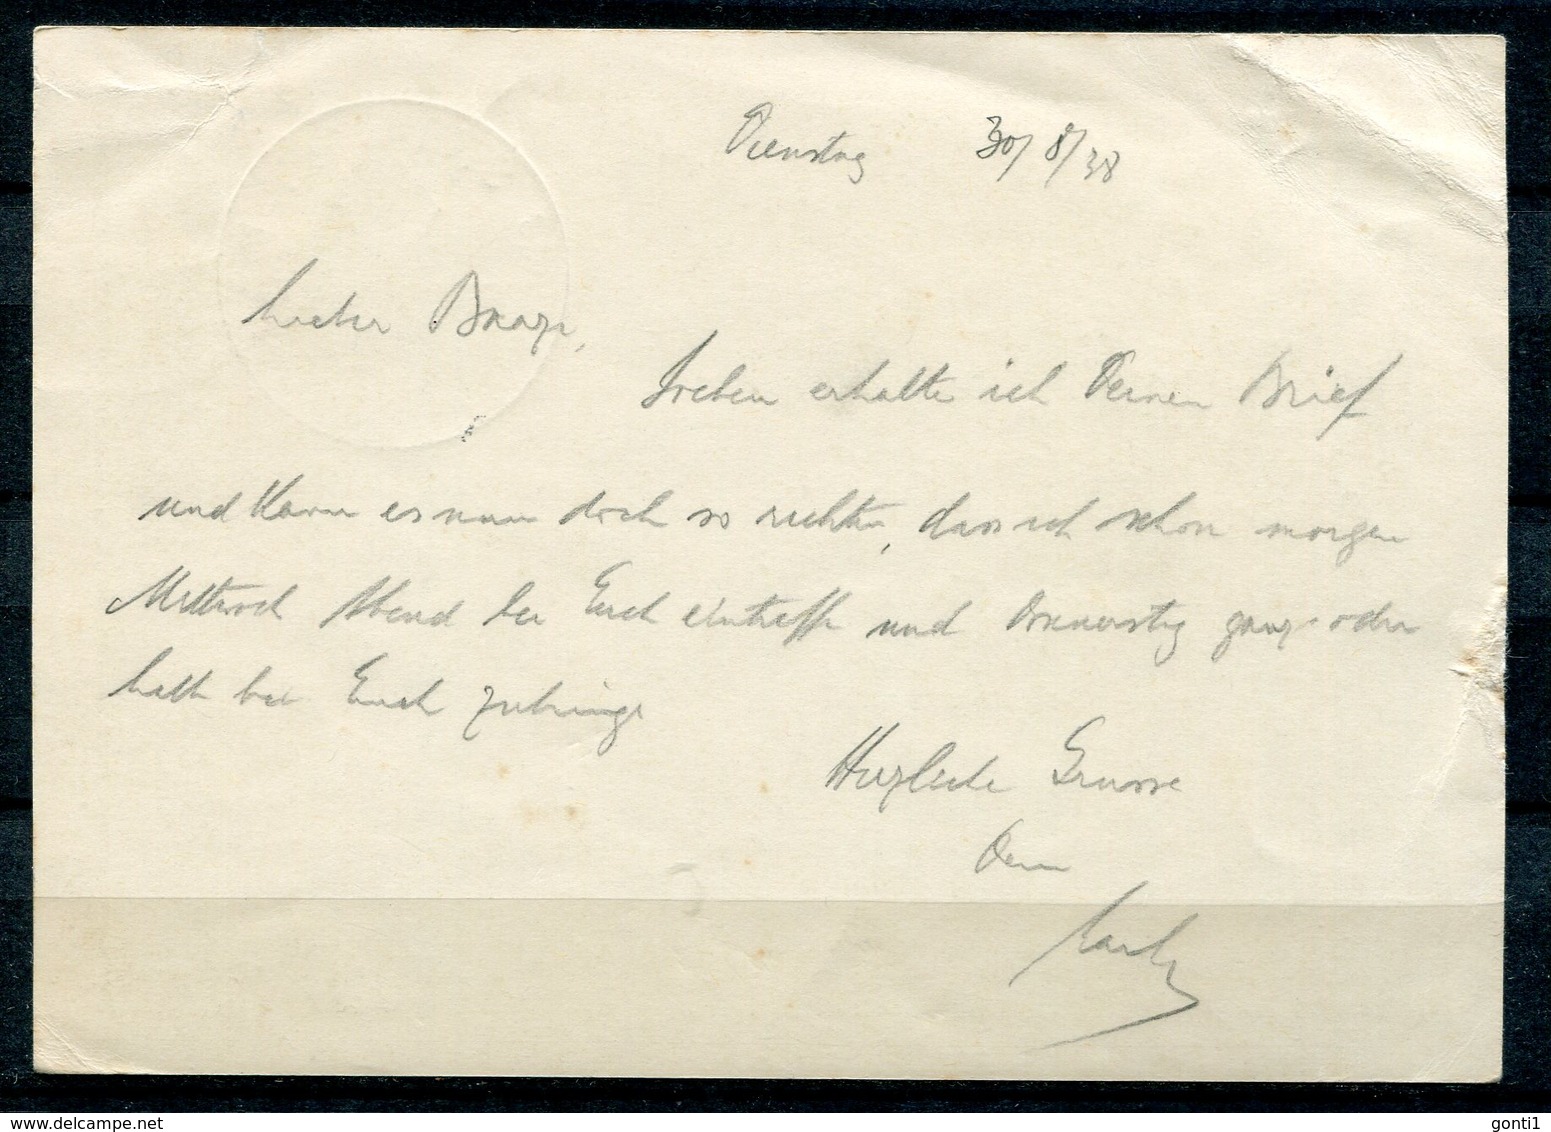 Dienstag 30/8/38
Lieber
Soeben erhalte ich Deinen Brief
und kann es nun doch so richten, dass ich schon morgen
Mittwoch Abend bei Euch eintreffe und Donnerstag ganz oder
halb bei Euch zubringe
Herzliche Grüsse
Dein
delcampe.net
gonti1